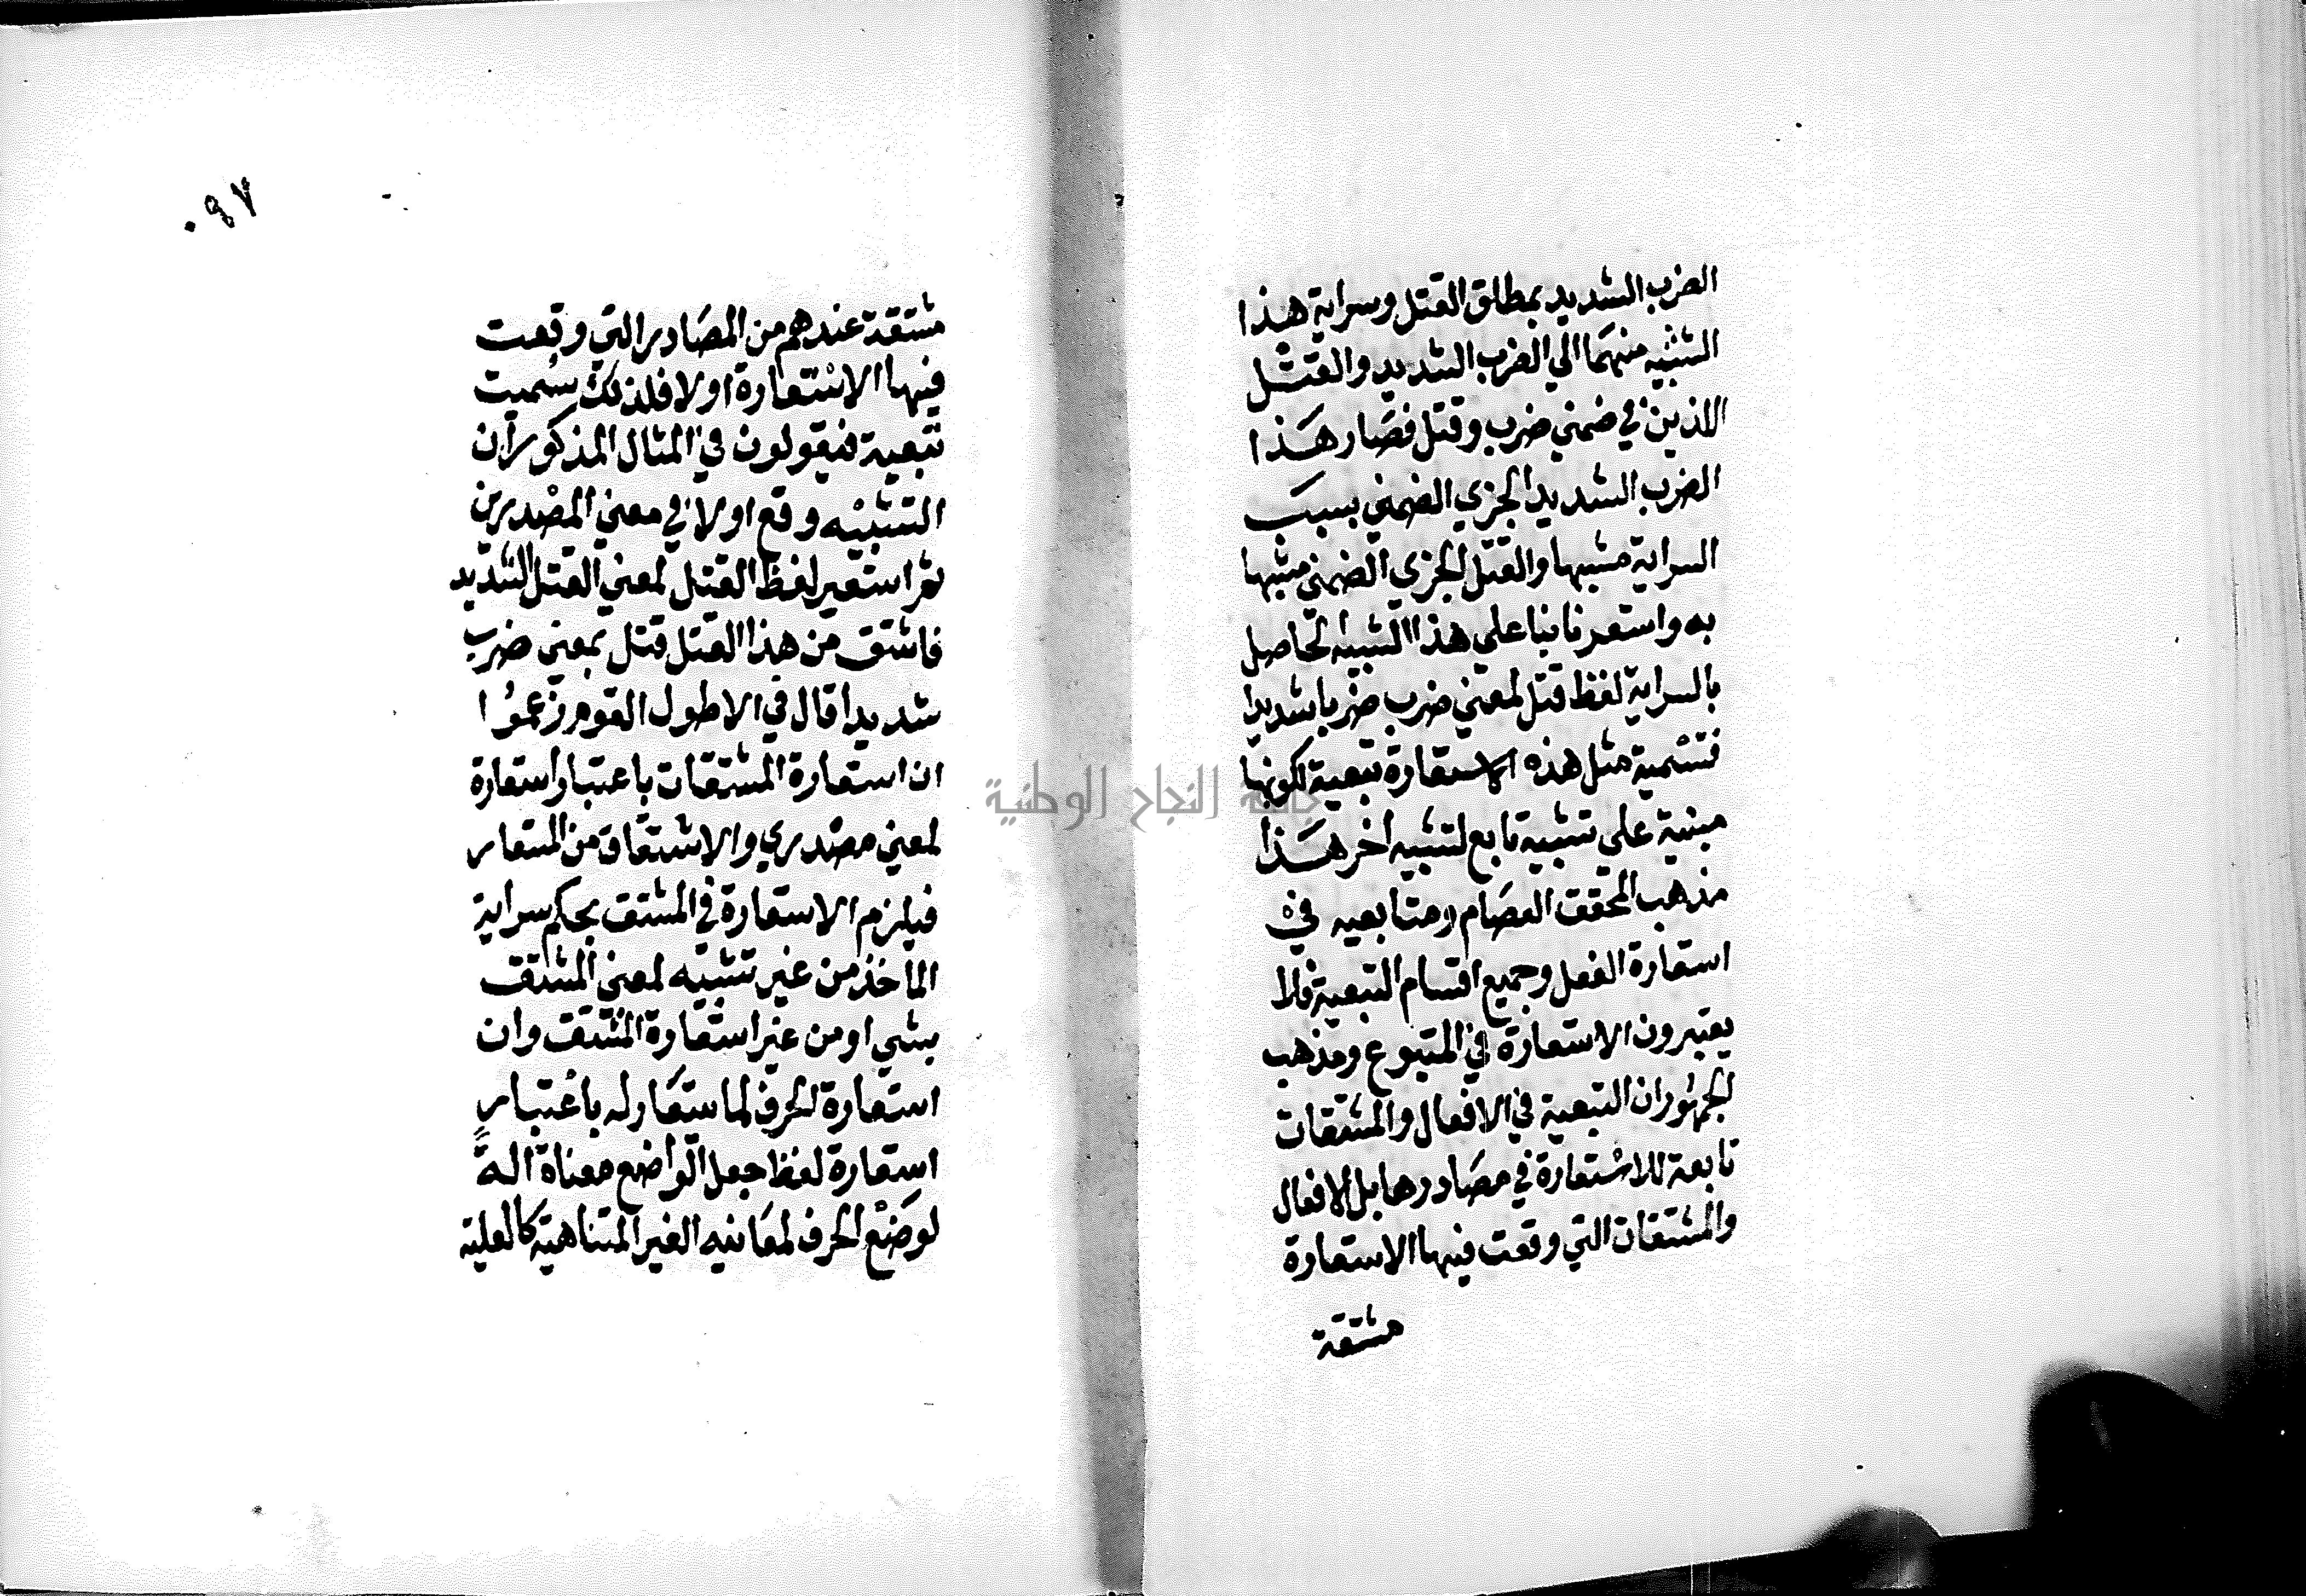 الضرب الشديد بمطلق القتل وسراية هذا
التشبيه منهما الي الضرب الشديد والقتل
اللذين في ضمني ضرب وقتل فصار هذا
الضرب الشديد الجزي الضمني بسبب
السراية مشبها والقتل الجزي الضمني مشبها
به واستعرنا بنا علي هذا التشبيه الحاصل
بالسراية لفظ قتل لمعني ضرب ضربا شديدا
فتسمية مثل هذه الاستعارة تبعية لكونها
مبنية علي تشبيه تابع لتشبيه اخر هذا
مذهب المحقق العصام ومتابعيه في
استعارة الفعل وجميع اقسام التبعية فلا
يعتبرون الاستعارة في المتبوع ومذهب
الجمهور ان التبعية في الافعال والمشتقات
تابعة للاستعارة في مصادرها بل الافعال
والمشتقات التي وقعت فيها الاستعارة
مشتقة
مشتقة عندهم من المصادر التي وقعت
فيها الاستعارة اولا فلذلك سُميت
تبعية فيقولون في المثال المذكور ان
التشبيه وقع اولا في معني المصدرين
ثم استعير لفظ القتل لمعني القتل الشديد
فاشتق من هذا القتل قتل بمعني ضرب
شديدا قال في الاطول القوم زعموا
ان استعارة المشتقات باعتبار استعارة
لمعني مصدري والاشتقاق من المستعار
فيلزم الاستعارة في المشتق بحكم سراية
الماخذ من غير تشبيه لمعني المشتق
بشي او من غير استعارة المشتق وان
استعارة الحرف لما ستعار له باعتبار
استعارة لفظ جعل الواضع معناة الةً
لوضع الحرف لمعانيه الغير المتناهية كالعلية
جامعة النجاح الوطنية